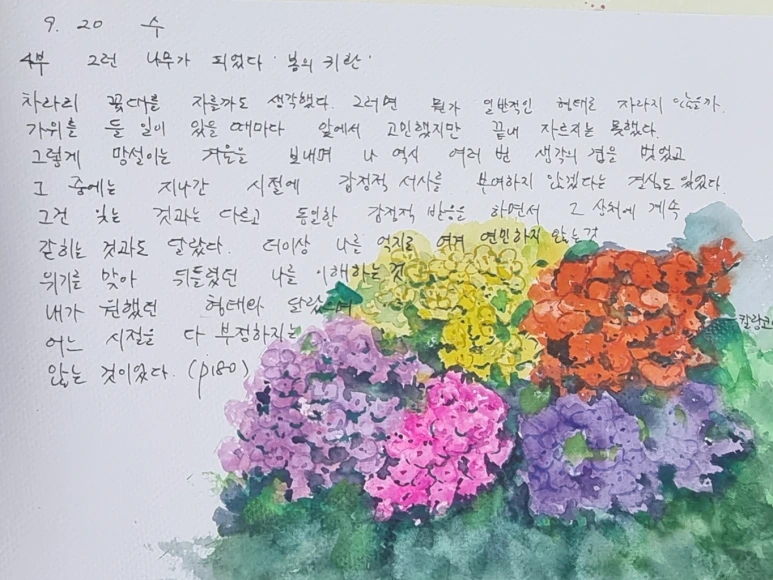 9. 20 수
4부 그런 나무가 되었다 '봄의 키란'
차라리 꽃대를 자를까도 생각했다. 그러면 뭔가 일반적인 형태로 자라지 않을까.
가위를 들 일이 있을 때마다 앞에서 고민했지만 끝내 자르지는 못했다.
그렇게 망설이는 겨울을 보내며 나 역시 여러 번 생각의 겹을 벗었고
그 중에는 지나간 시절에 감정적 서사를 부여하지 않겠다는 결심도 있었다.
그건 잊는 것과는 다르고 동일한 감정적 반응을 하면서 그 상처에 계속
갇히는 것과도 달랐다. 더이상 나를 억지로 여겨 연민하지 않는 것
위기를 맞아 뒤틀렸던 나를 이해하는 것
내가 원했던 형태와 달랐
어느 시절을 다 부정하지는
않는 것이었다. (p180)